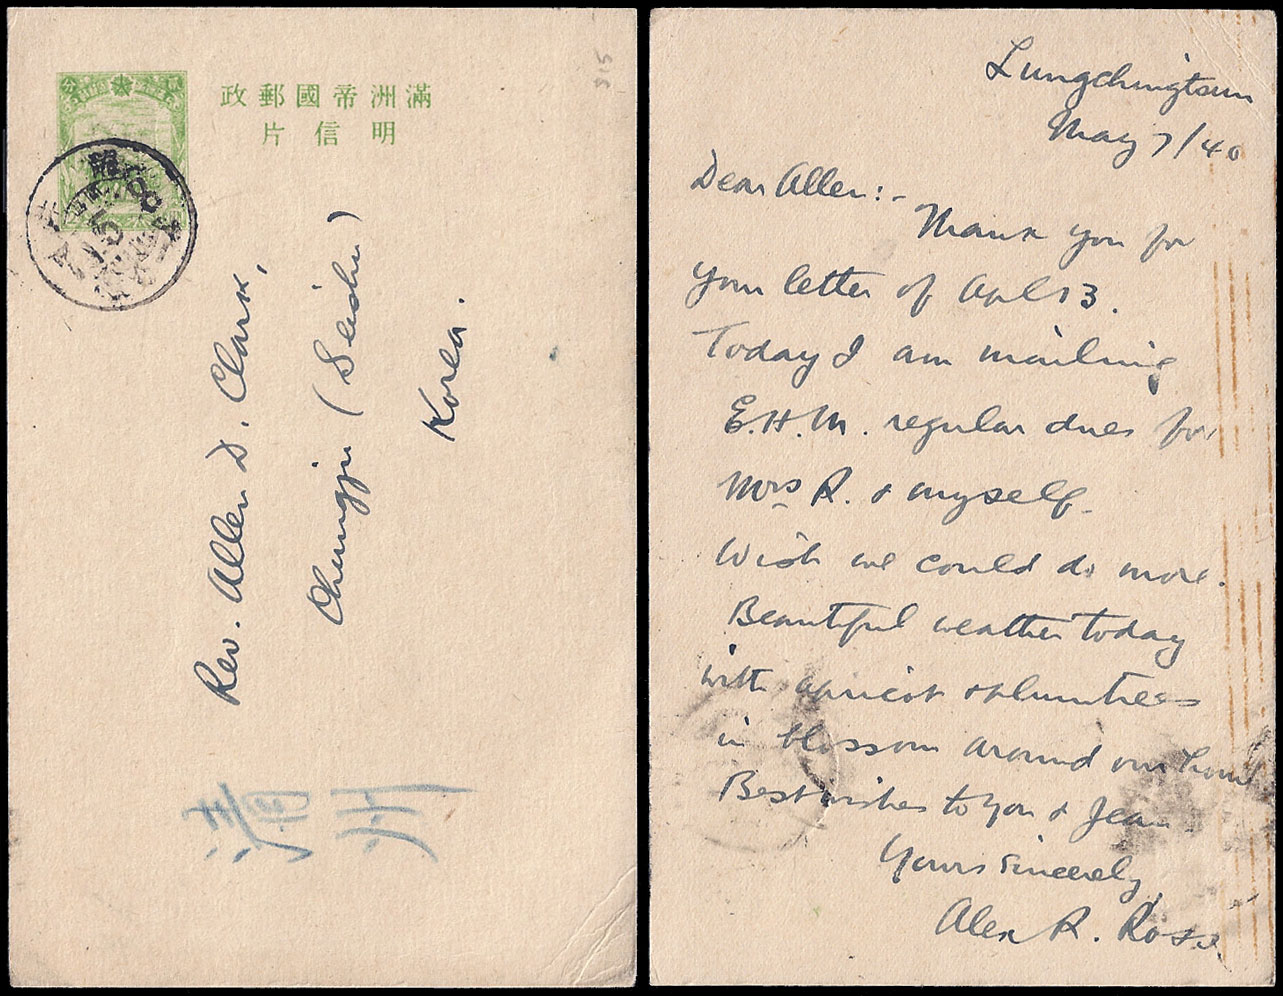 滿洲帝國郵政
明信片
315
Rev. Allen D. Clark,
Chungju (Seishu)
Korea.
清州
Lungchingtsun
May 7/40
Dear Allen:-
Thank you for
your letter of Apl 13.
Today I am mailing
E.H.M. regular dues for
Mrs R. & myself.
Wish we could do more.
Beautiful weather today
with apricot & plumtrees
in blossom around our home
Best wishes to you & Jean
Yours sincerely,
Alex R. Ross.